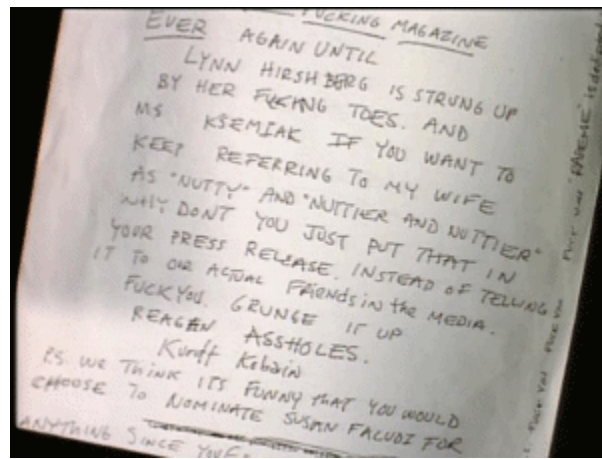 FUCKING MAGAZINE
EVER AGAIN UNTIL
LYNN HIRSHBERG IS STRUNG UP
BY HER FUCKING TOES. AND
MS KSEMIAK IF YOU WANT TO
KEEP REFERRING TO MY WIFE
AS "NUTTY" AND "NUTTIER AND NUTTIER"
WHY DONT YOU JUST PUT THAT IN
YOUR PRESS RELEASE. INSTEAD OF TELLING
IT TO OUR ACTUAL FRIENDS IN the MEDIA.
FUCK YOU. GRUNGE IT UP
REAGAN ASSHOLES.
Kurdt Kobain
P.S. WE THINK ITS FUNNY THAT YOU WOULD
CHOOSE TO NOMINATE SUSAN FALUDI FOR
ANYTHING SINCE
FUCK YOU FUCK YOU FUCK YOU is defined